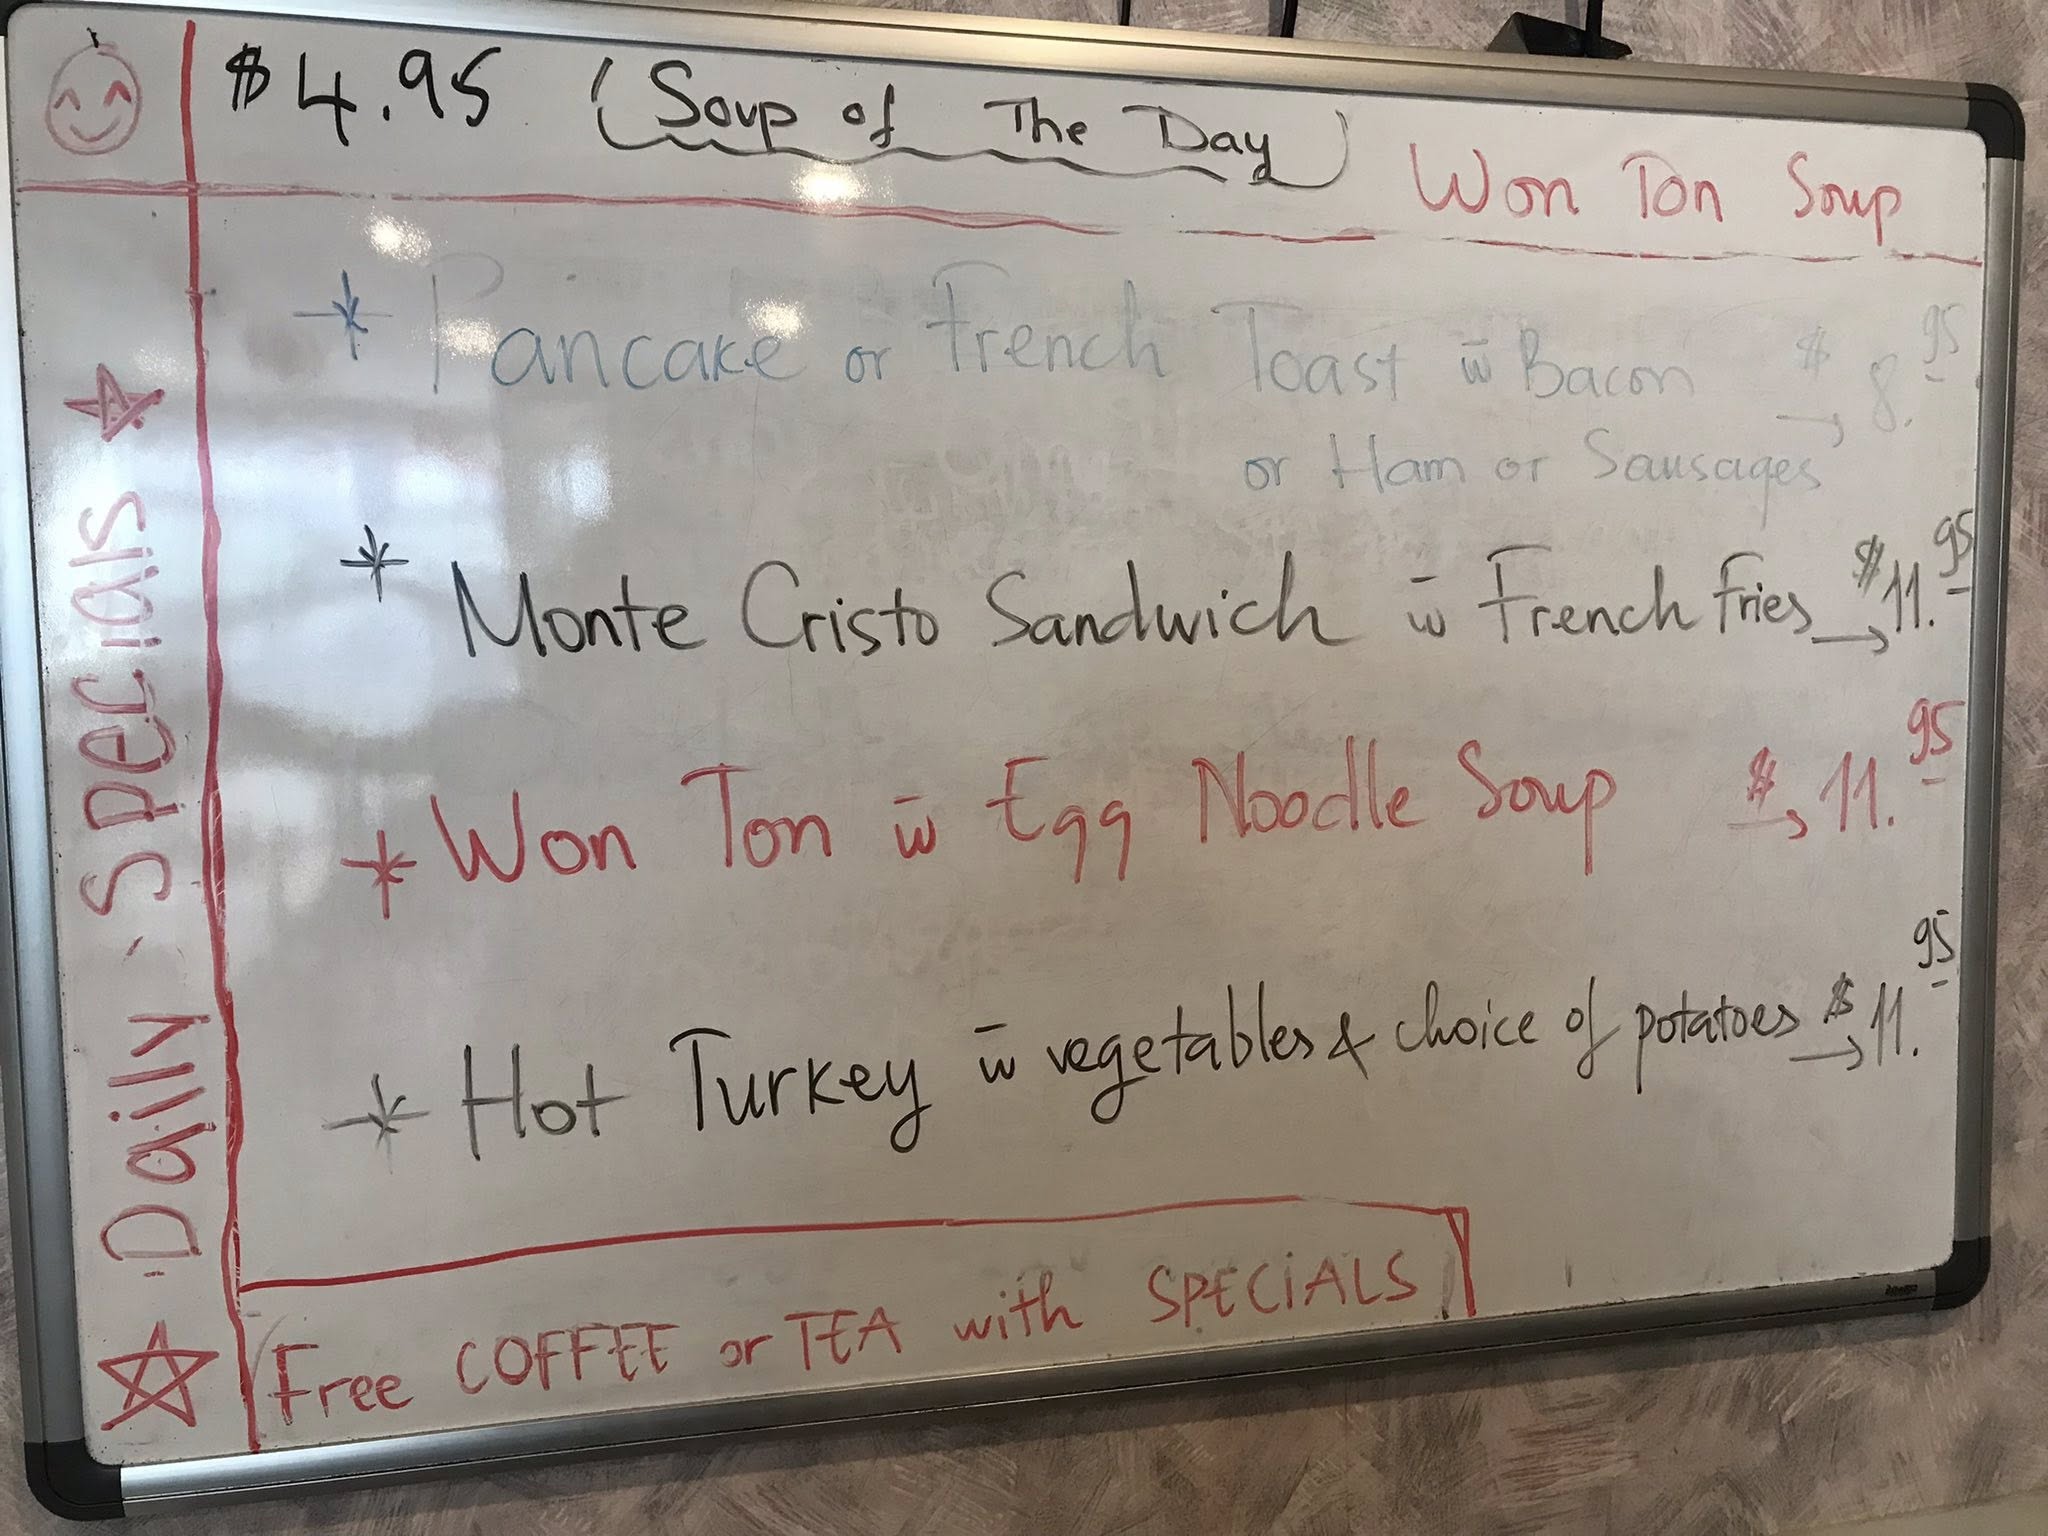 $4.95 (Soup of The Day) Won Ton Soup
Daily Specials
* Pancake or French Toast w̄ Bacon $ 8.95
or Ham or Sausages
* Monte Cristo Sandwich w̄ French Fries $11.95
* Won Ton w̄ Egg Noodle Soup $ 11.95
* Hot Turkey w̄ vegetables & choice of potatoes $11.95
Free COFFEE or TEA with SPECiALS